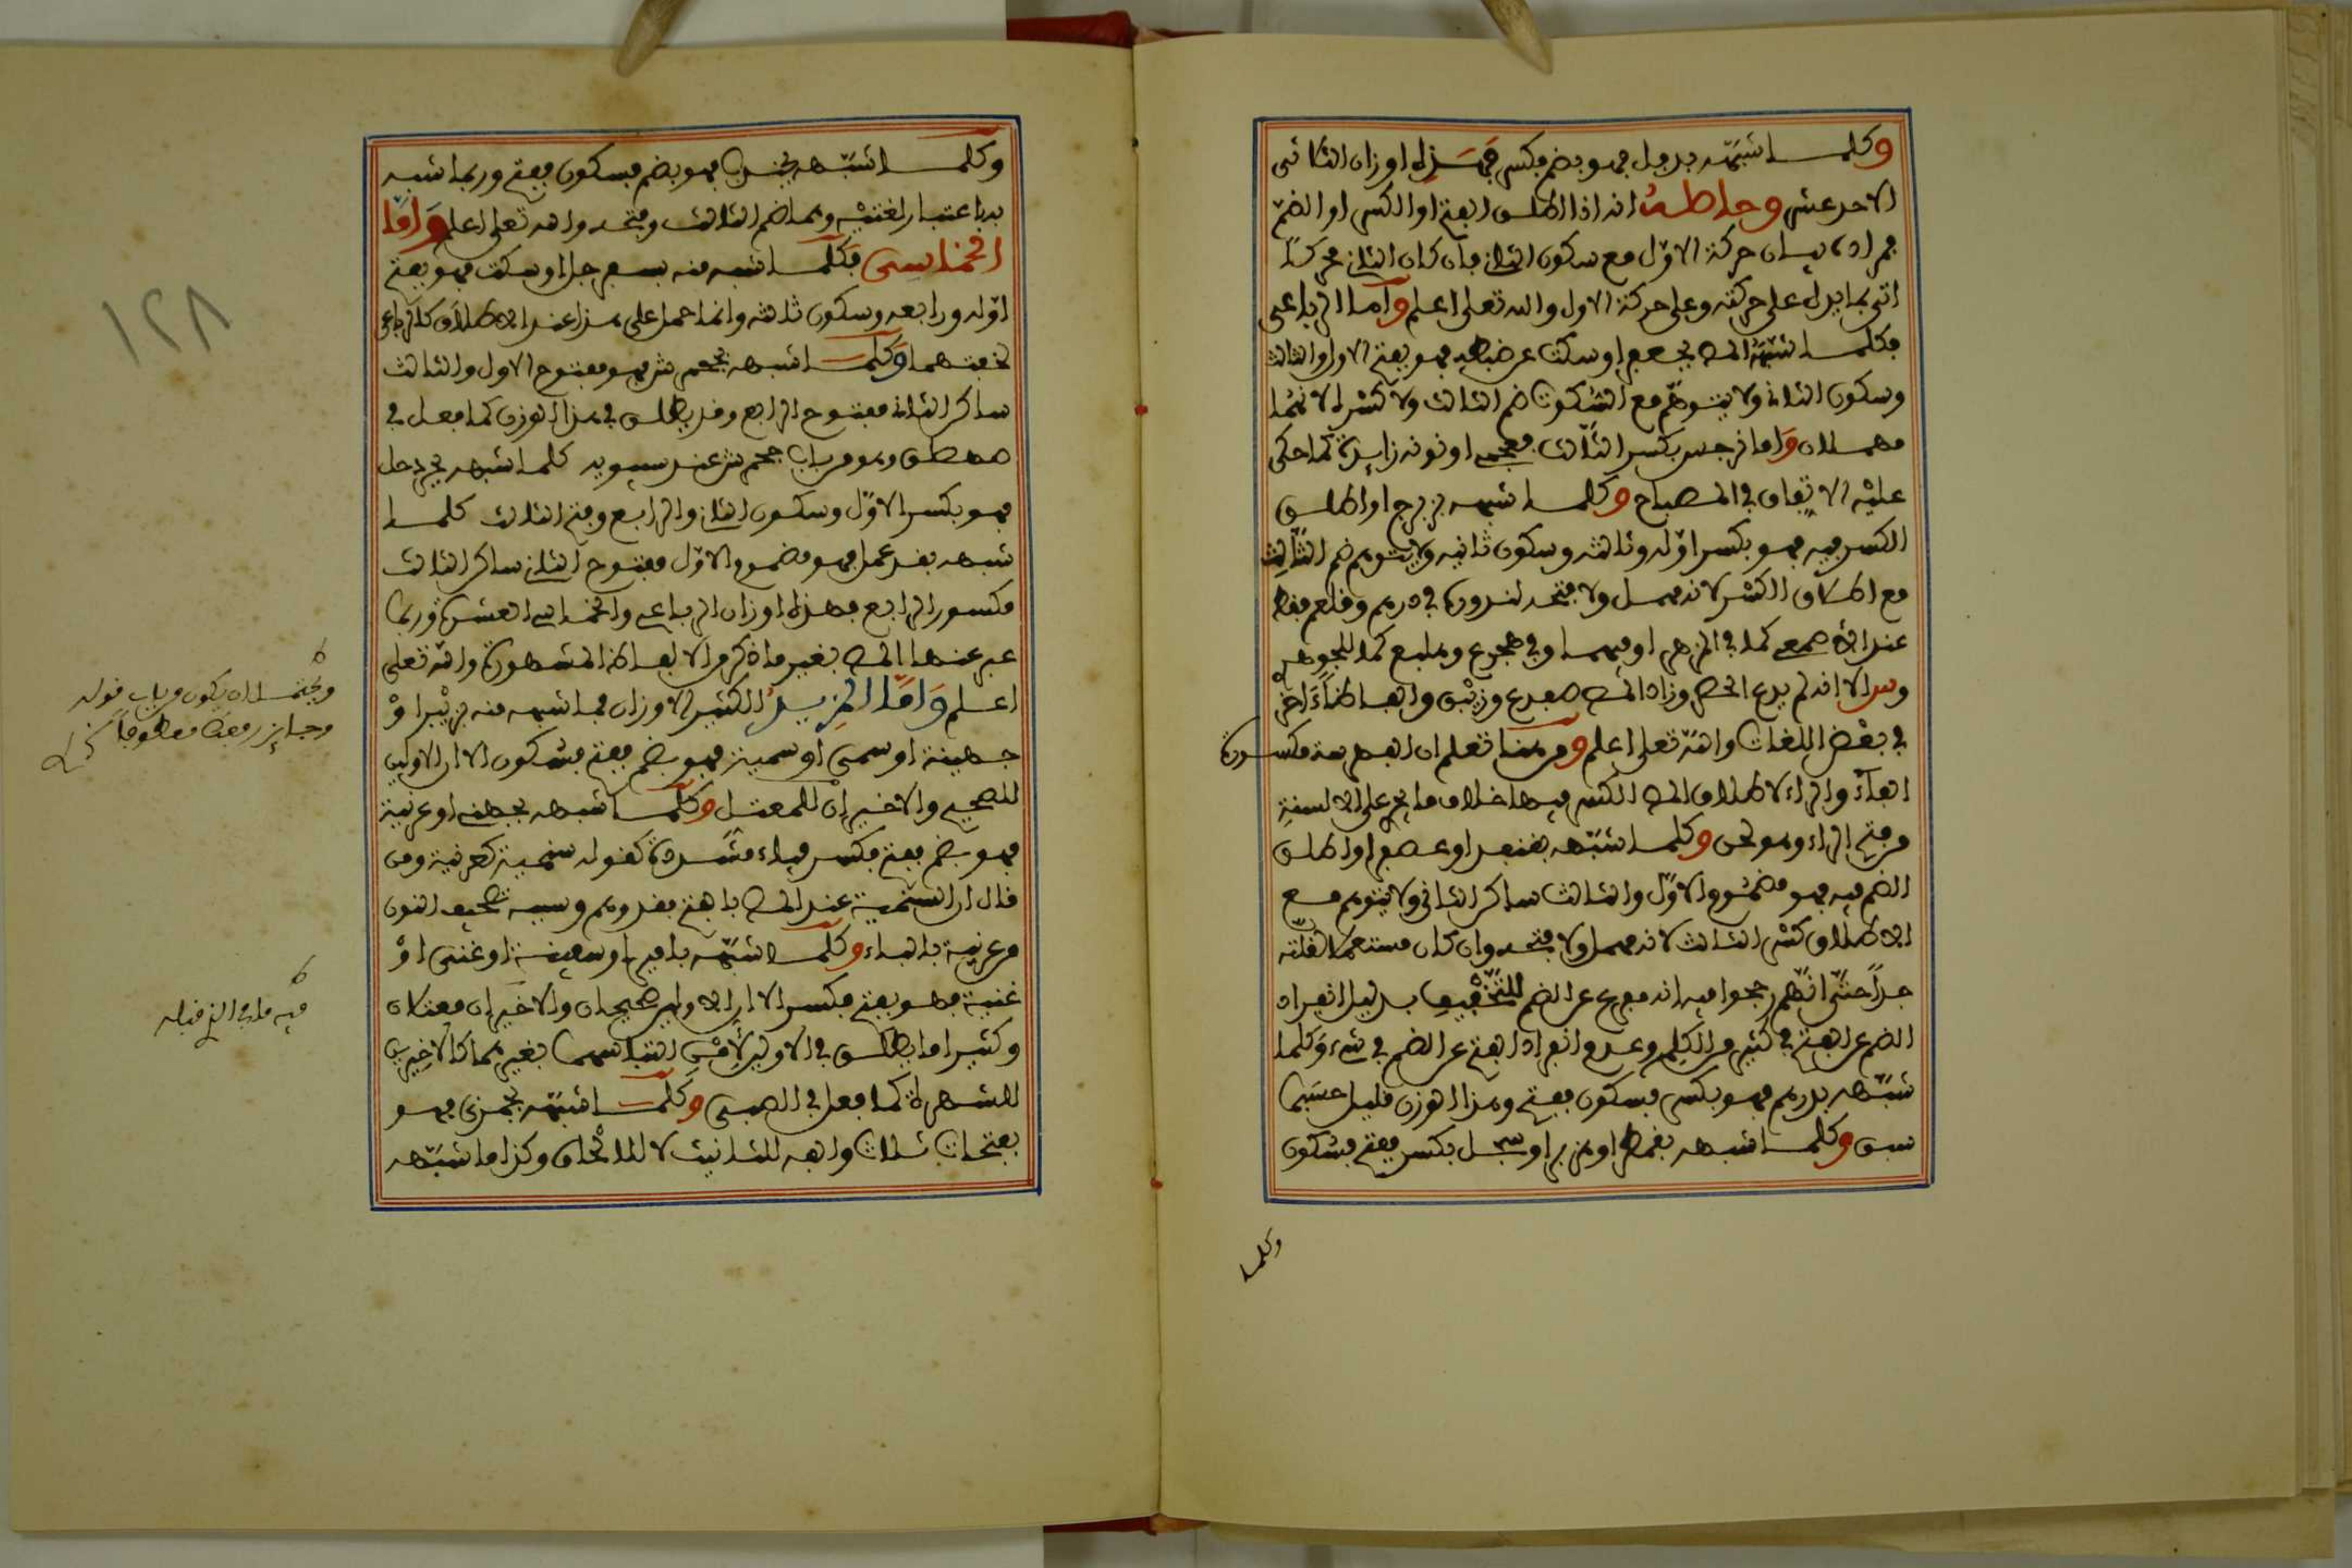 وكلما شبهه بدئل فهو بضم فكسر فهذه اوزان الثلاثي
الاحد عشر وحاصله انه اذا اطلق الفتح او الكسر او الضم
فمراده بيان حركة الاول مع سكون الثاني فان كان الثاني محركا
اتى بما يدل على حركته وعلى حركة الاول والله تعلى اعلم واما الرباعي
فكلما شبهه المص بجعفر او سكت عن ضبطه فهو بفتح الاول والثالث
وسكون الثاني ولا يتوهم مع السكوت ضم الثالث ولا كسره لانهما
مهملان واما نرجس بكسر الثالث فعجمي او نونه زايدة كما حكى
عليه الاتفاق في المصباح وكلما شبهه بزبرج او اطلق
الكسر فيه فهو بكسر اوله وثالثه وسكون ثانيه ولا يتوهم ضم الثالث
مع اطلاق الكسر لانه مهمل ولا فتحه لندوره في درهم وقلعم فقط
عند الاصمعي كما في المزهر او فيهما وفي هجرع وهبلع كما للجوهري
في بعض اللغات والله تعلى اعلم ومن هنا تعلم ان مكسورة
الفاء والراء لاطلاق المص الكسر فيها خلاف ما يجري على الالسنة
من فتح الراء وهو لحن وكلما شبهه بقنفذ او عصفر او اطلق
الضم فيه فهو مضموم الاول والثالث ساكن الثاني ولا يتوهم مع
الاطلاق كسر الثالث لانه مهمل ولا فتحه وان كان مستعملا لقلته
جدا حتى انهم رجحوا فيه انه مفرع عن الضم للتخفيف بدليل انفراد
الضم عن الفتح في كثير من الكلم وعدم انفراد الفتح عن الضم في شيء وكلما
شبهه بدرهم فهو بكسر فسكون ففتح وهذا الوزن قليل حسبما
سبق وكلما شبهه بقمطر او هزبر او سجل بكسر ففتح فسكون
وكلما
وكلما شبهه بجندب فهو بضم فسكون ففتح وربما شبه
به باعتبار لغتيه وهما ضم الثالث وفتحه والله تعلى اعلم واما
الخماسي فكلما شبهه منه بسفرجل او سكت فهو بفتح
اوله ورابعه وسكون ثالثه وانما حمل على هذا عند الاطلاق كالرباعي
لخفتهما وكلما شبهه بجحمرش فهو مفتوح الاول والثالث
ساكن الثاني مفتوح الرابع وقد يطلق في هذا الوزن كما فعل في
صهصلق وهو من باب جحمرش عند سيبويه كلما شبهه بجردحل
فهو بكسر الاول وسكون الثاني والرابع وفتح الثالث كلما
شبهه بقذعمل فهو مضموم الاول مفتوح الثاني ساكن الثالث
مكسور الرابع فهذه اوزان الرباعي والخماسي العشرة وربما
عبر عنها المص بغير ما ذكر من الالفاظ المشهورة والله تعلى
اعلم واما المزيد الكثير الاوزان فما شبهه منه بزبير او
جهينة او سمي او سمية فهو بضم ففتح فسكون الا ان الاولين
للصحيح والاخيران للمعتل وكلما شبهه بجهني او عرنية
فهو بضم ففتح فكسر فياء مشددة كقوله سمية كعرنية ومن
قال ان السمية عند المص بالفتح فقد وهم وسببه تصحيف النون
من عرنية بالياء وكلما شبهه بامير او سفينة او غني او
غنية فهو بفتح فكسر الا ان الاولين صحيحان والاخيران معتلان
وكثيرا ما يطلق في الاولين لامن التباسهما بغيرهما كالاخيرين
للشهرة كما فعل في الصبي وكلما شبهه بجمزى فهو
بفتحات ثلاث والفه للتانيث لا للالحاق وكذا ما شبهه
ويحتمل ان يكون من باب قوله
وجايز رفعك معطوفا
١٢٨